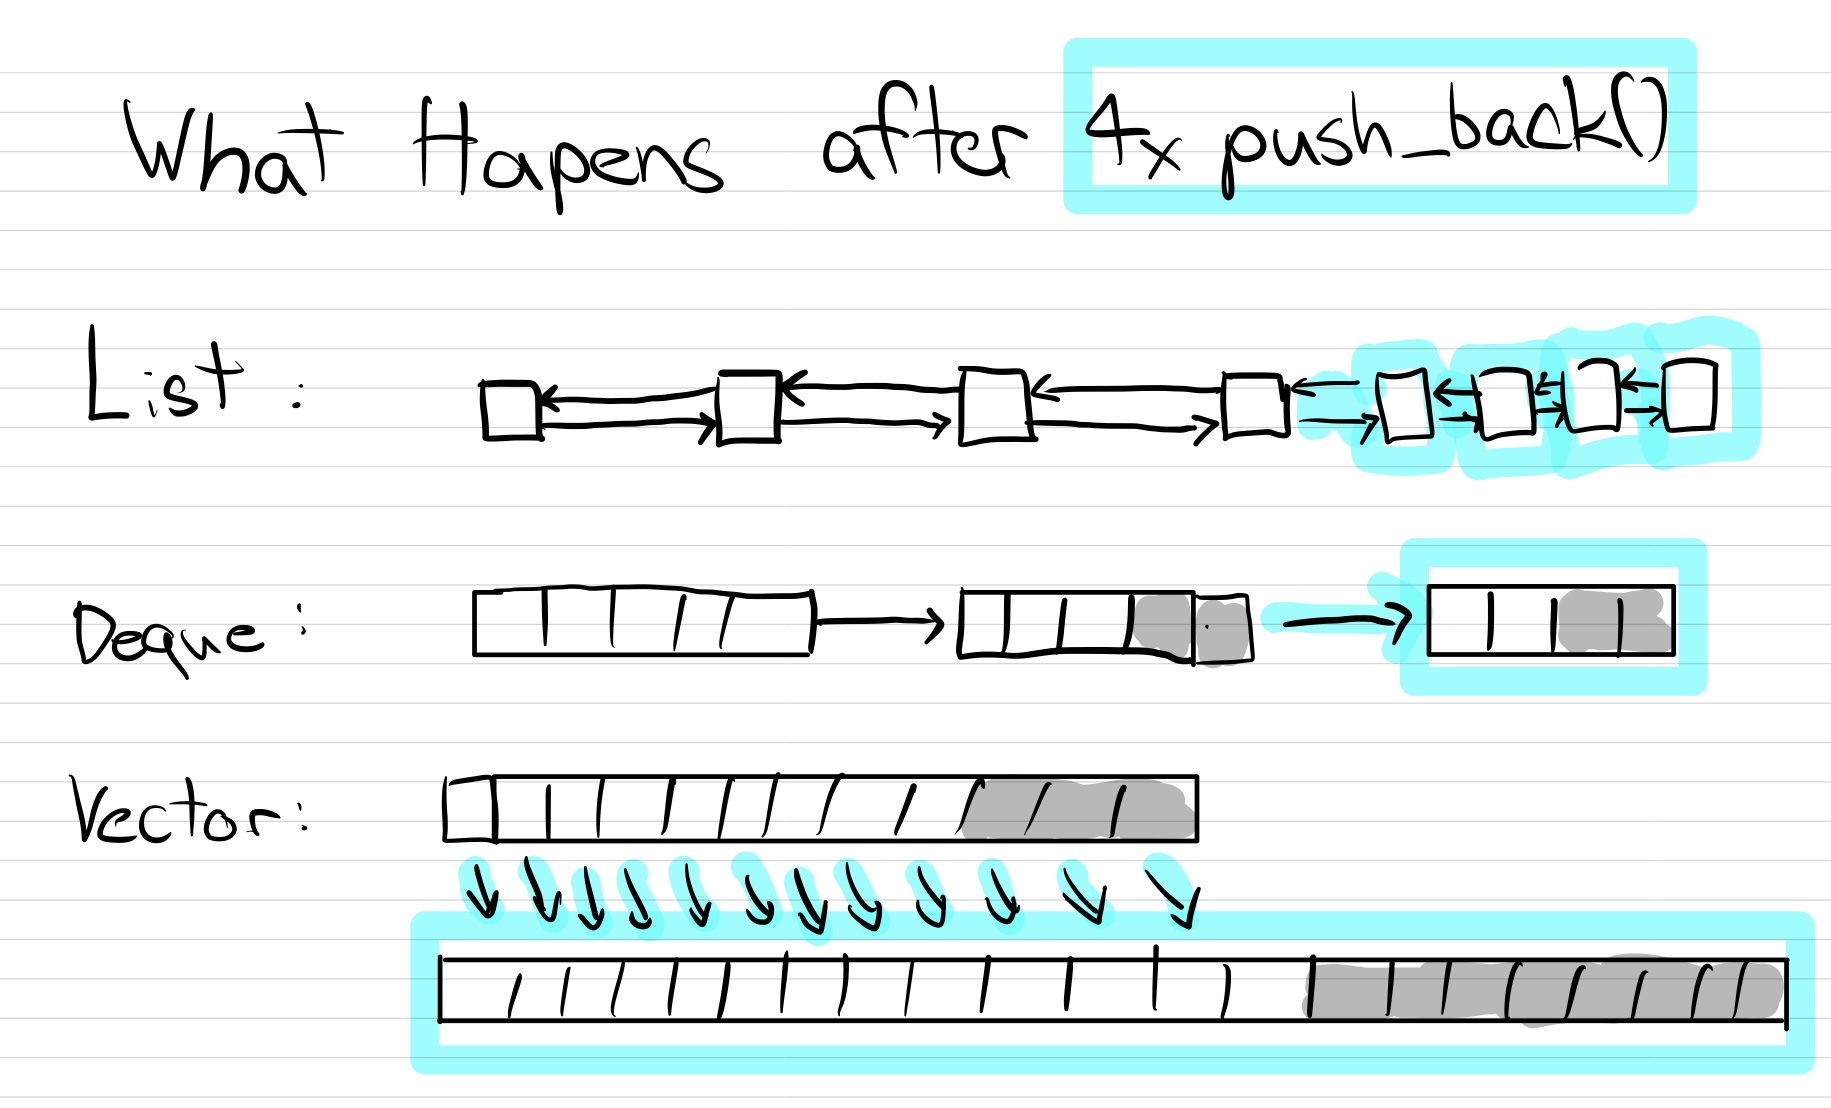 What Hapens after 4x push_back()
List :
Deque :
Vector :